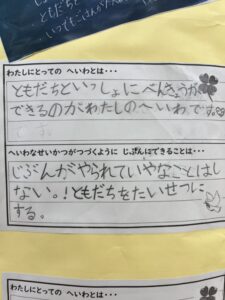 ともだちと
いつもごはんが
わたしにとっての へいわとは・・・
ともだちといっしょに べんきょうが
できるのがわたしのへいわです。
へいわなせいかつがつづくように じぶんにできることは・・・
じぶんがやられていやなことはし
ない。!ともだちをたいせつに
する。
わたしにとっての へいわとは・・・